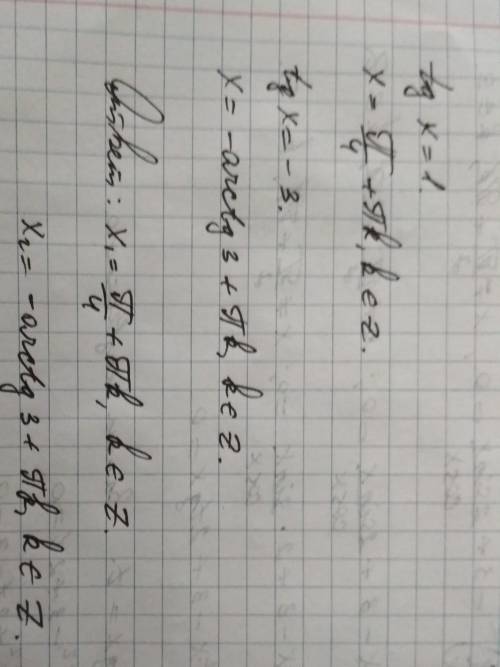 tg x = 1.
x = π/4 + πk, k ∈ z.
tg x = - 3.
x = - arctg 3 + πk, k ∈ z.
Ответ: x₁ = π/4 + πk, k ∈ z.
x₂ = - arctg 3 + πk, k ∈ z.